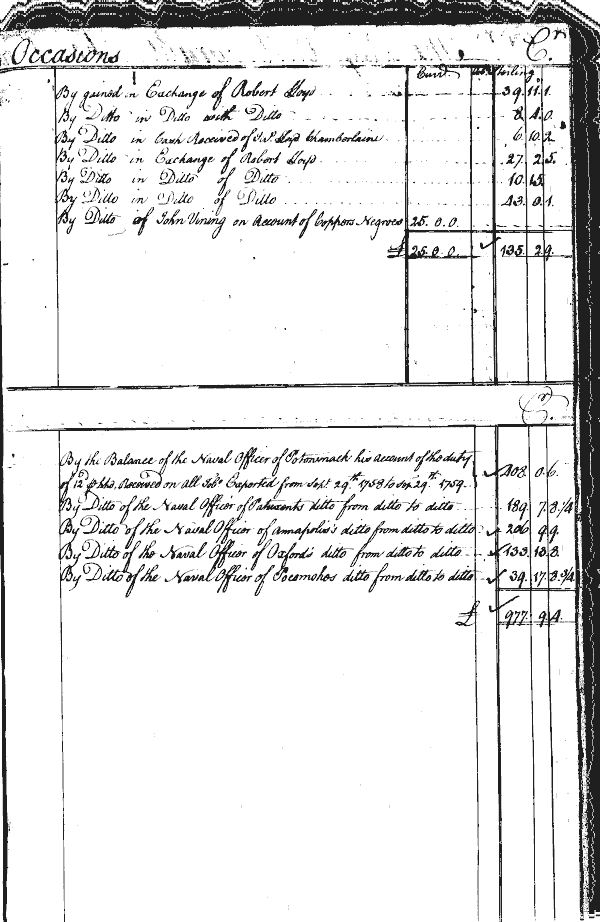 Occasions Cr
Curr Sterling
By gained in Exchange of Robert Lloyd 39. 11. 1.
By Ditto in Ditto with Ditto 8. 4. 0.
By Ditto in Cash Received of Lloyd Chamberlaine 6. 10. 2
By Ditto in Exchange of Robert Lloyd 27. 2. 5.
By Ditto in Ditto of Ditto 10. 15.
By Ditto in Ditto of Ditto 43. 0. 1.
By Ditto of John Vining on Account of Coppers Negroes 25. 0. 0.
£ 25. 0. 0. 135. 2. 9.
Cr.
By the Balance of the Naval Officer of Potommack his account of the duty
of 12d Hhd, Received on all Tobo Exported from Sept. 29th 1758 to Sep. 29th 1759. 408. 0. 6.
By Ditto of the Naval Officer of Patuxents ditto from ditto to ditto 189. 7. 8. 1/4
By Ditto of the Naval Officer of Annapolis's ditto from ditto to ditto 206. 9. 9.
By Ditto of the Naval Officer of Oxford's ditto from ditto to ditto 133. 13. 8.
By Ditto of the Naval Officer of Pocomokes ditto from ditto to ditto 39. 17. 8. 3/4
£ 977. 9. 4.